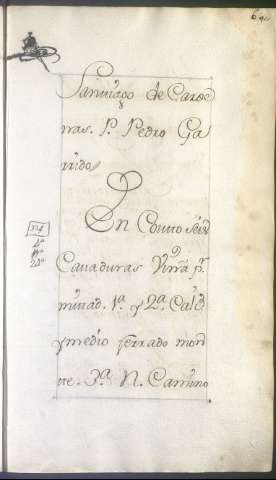 Santiago de Carde
nas. P. Pedro Ga
rrido
En Couto seis
Cavaduras Viña pr.
mitad. 1ª y 2ª Cald.
y medio ferrado mon
te. 3ª N. Camino
4ª
2ª